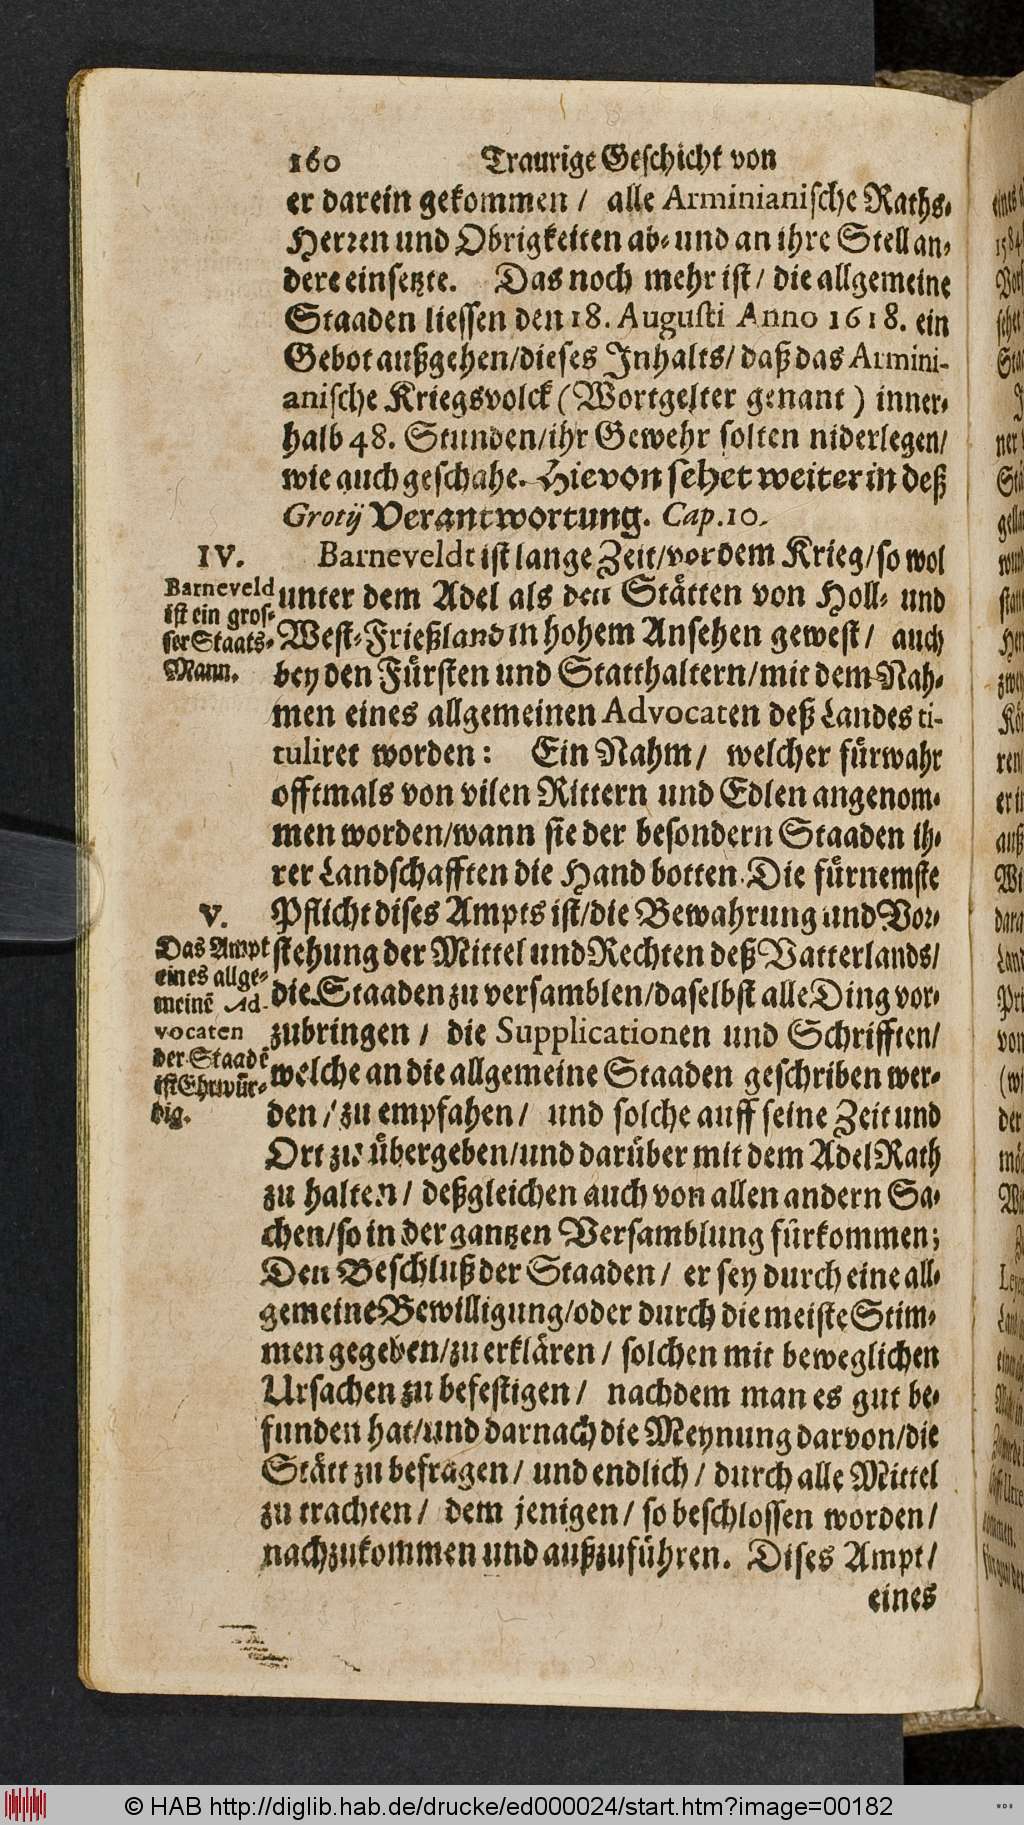 160 Traurige Geschicht von
er darein gekommen / alle Arminianische Raths-
Herren und Obrigkeiten ab- und an ihre Stell an-
dere einsetzte. Das noch mehr ist / die allgemeine
Staaden liessen den 18. Augusti Anno 1618. ein
Gebot außgehen/dieses Inhalts/ daß das Armini-
anische Kriegsvolck (Wortgelter genant) inner-
halb 48. Stunden/ihr Gewehr solten niderlegen/
wie auch geschahe. Hievon sehet weiter in deß
Grotij Verantwortung. Cap.10.
IV. Barneveldt ist lange Zeit/vor dem Krieg/so wol
Barneveld
ist ein gros-
ser Staats-
Mann.
unter dem Adel als den Stätten von Holl- und
West-Frießland in hohem Ansehen gewest/ auch
bey den Fürsten und Statthaltern/mit dem Nah-
men eines allgemeinen Advocaten deß Landes ti-
tuliret worden: Ein Nahm/ welcher fürwahr
offtmals von vilen Rittern und Edlen angenom-
men worden/wann sie der besondern Staaden ih-
rer Landschafften die Hand botten. Die fürnemste
V. Pflicht dises Ampts ist/die Bewahrung und Vor-
Das Ampt
eines allge-
meinē Ad-
vocaten
der Staadē
ist Ehrwür-
dig.
stehung der Mittel und Rechten deß Vatterlands/
die Staaden zu versamblen/daselbst alle Ding vor-
zubringen / die Supplicationen und Schrifften/
welche an die allgemeine Staaden geschriben wer-
den / zu empfahen / und solche auff seine Zeit und
Ort zu übergeben/und darüber mit dem Adel Rath
zu halten / deßgleichen auch von allen andern Sa-
chen/so in der gantzen Versamblung fürkommen;
Den Beschluß der Staaden / er sey durch eine all-
gemeine Bewilligung/oder durch die meiste Stim-
men gegeben/zu erklären / solchen mit beweglichen
Ursachen zu befestigen / nachdem man es gut be-
funden hat/und darnach die Meynung darvon/die
Stätt zu befragen / und endlich / durch alle Mittel
zu trachten / dem jenigen / so beschlossen worden /
nachzukommen und außzuführen. Dises Ampt /
eines
© HAB http://diglib.hab.de/drucke/ed000024/start.htm?image=00182